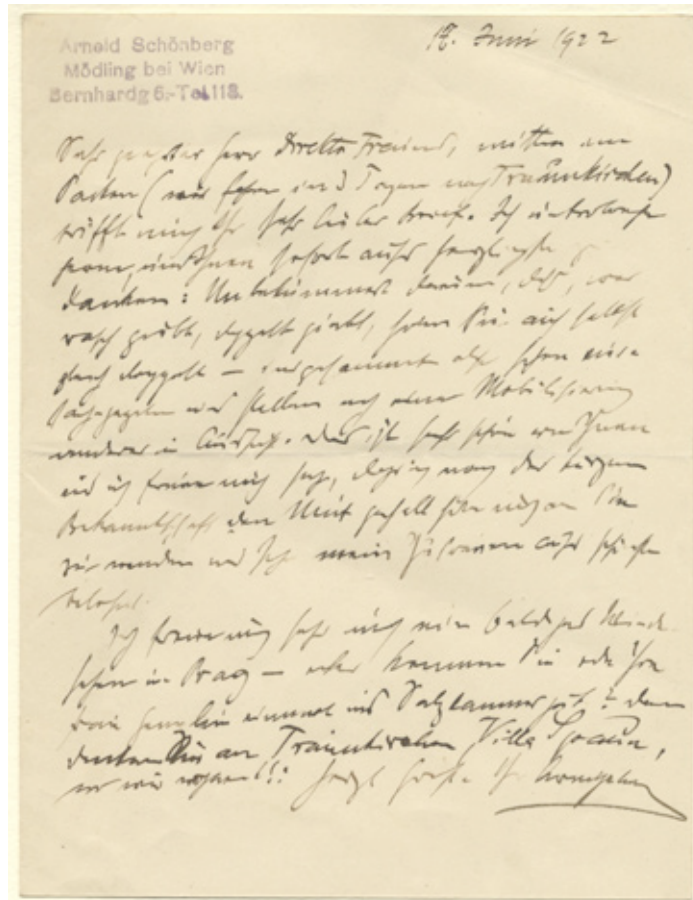 Arnold Schönberg
Mödling bei Wien
Bernhardg 6.-Tel.118.
Juni 1922
Sehr geehrter Herr Direktor Freund, mitten am
Packen (wir fahren in 3 Tagen nach Traunkirchen)
trifft mich Ihr sehr lieber Brief. Ich unterbreche
Ihnen sofort aufs herzlichste
danken: Unbekümmert darum, daß, wer
rasch giebt, doppelt giebt, haben Sie auch selbst
gleich doppelt —
und stellen noch eine Mobilisierung
anderer in Aussicht. Das ist sehr schön von Ihnen
und ich freue mich sehr, daß ich nach der kurzen
Bekanntschaft den Mut gehabt habe mich an Sie
zu wenden und sehe mein Zutrauen aufs schönste
belohnt.
Ich freue mich sehr auf ein baldiges Wieder-
sehen in Prag — oder kommen Sie oder Ihre
Frau Gemahlin einmal ins Salzkammergut? dann
denken Sie an Traunkirchen Villa Spaun,
wo wir wohnen!!